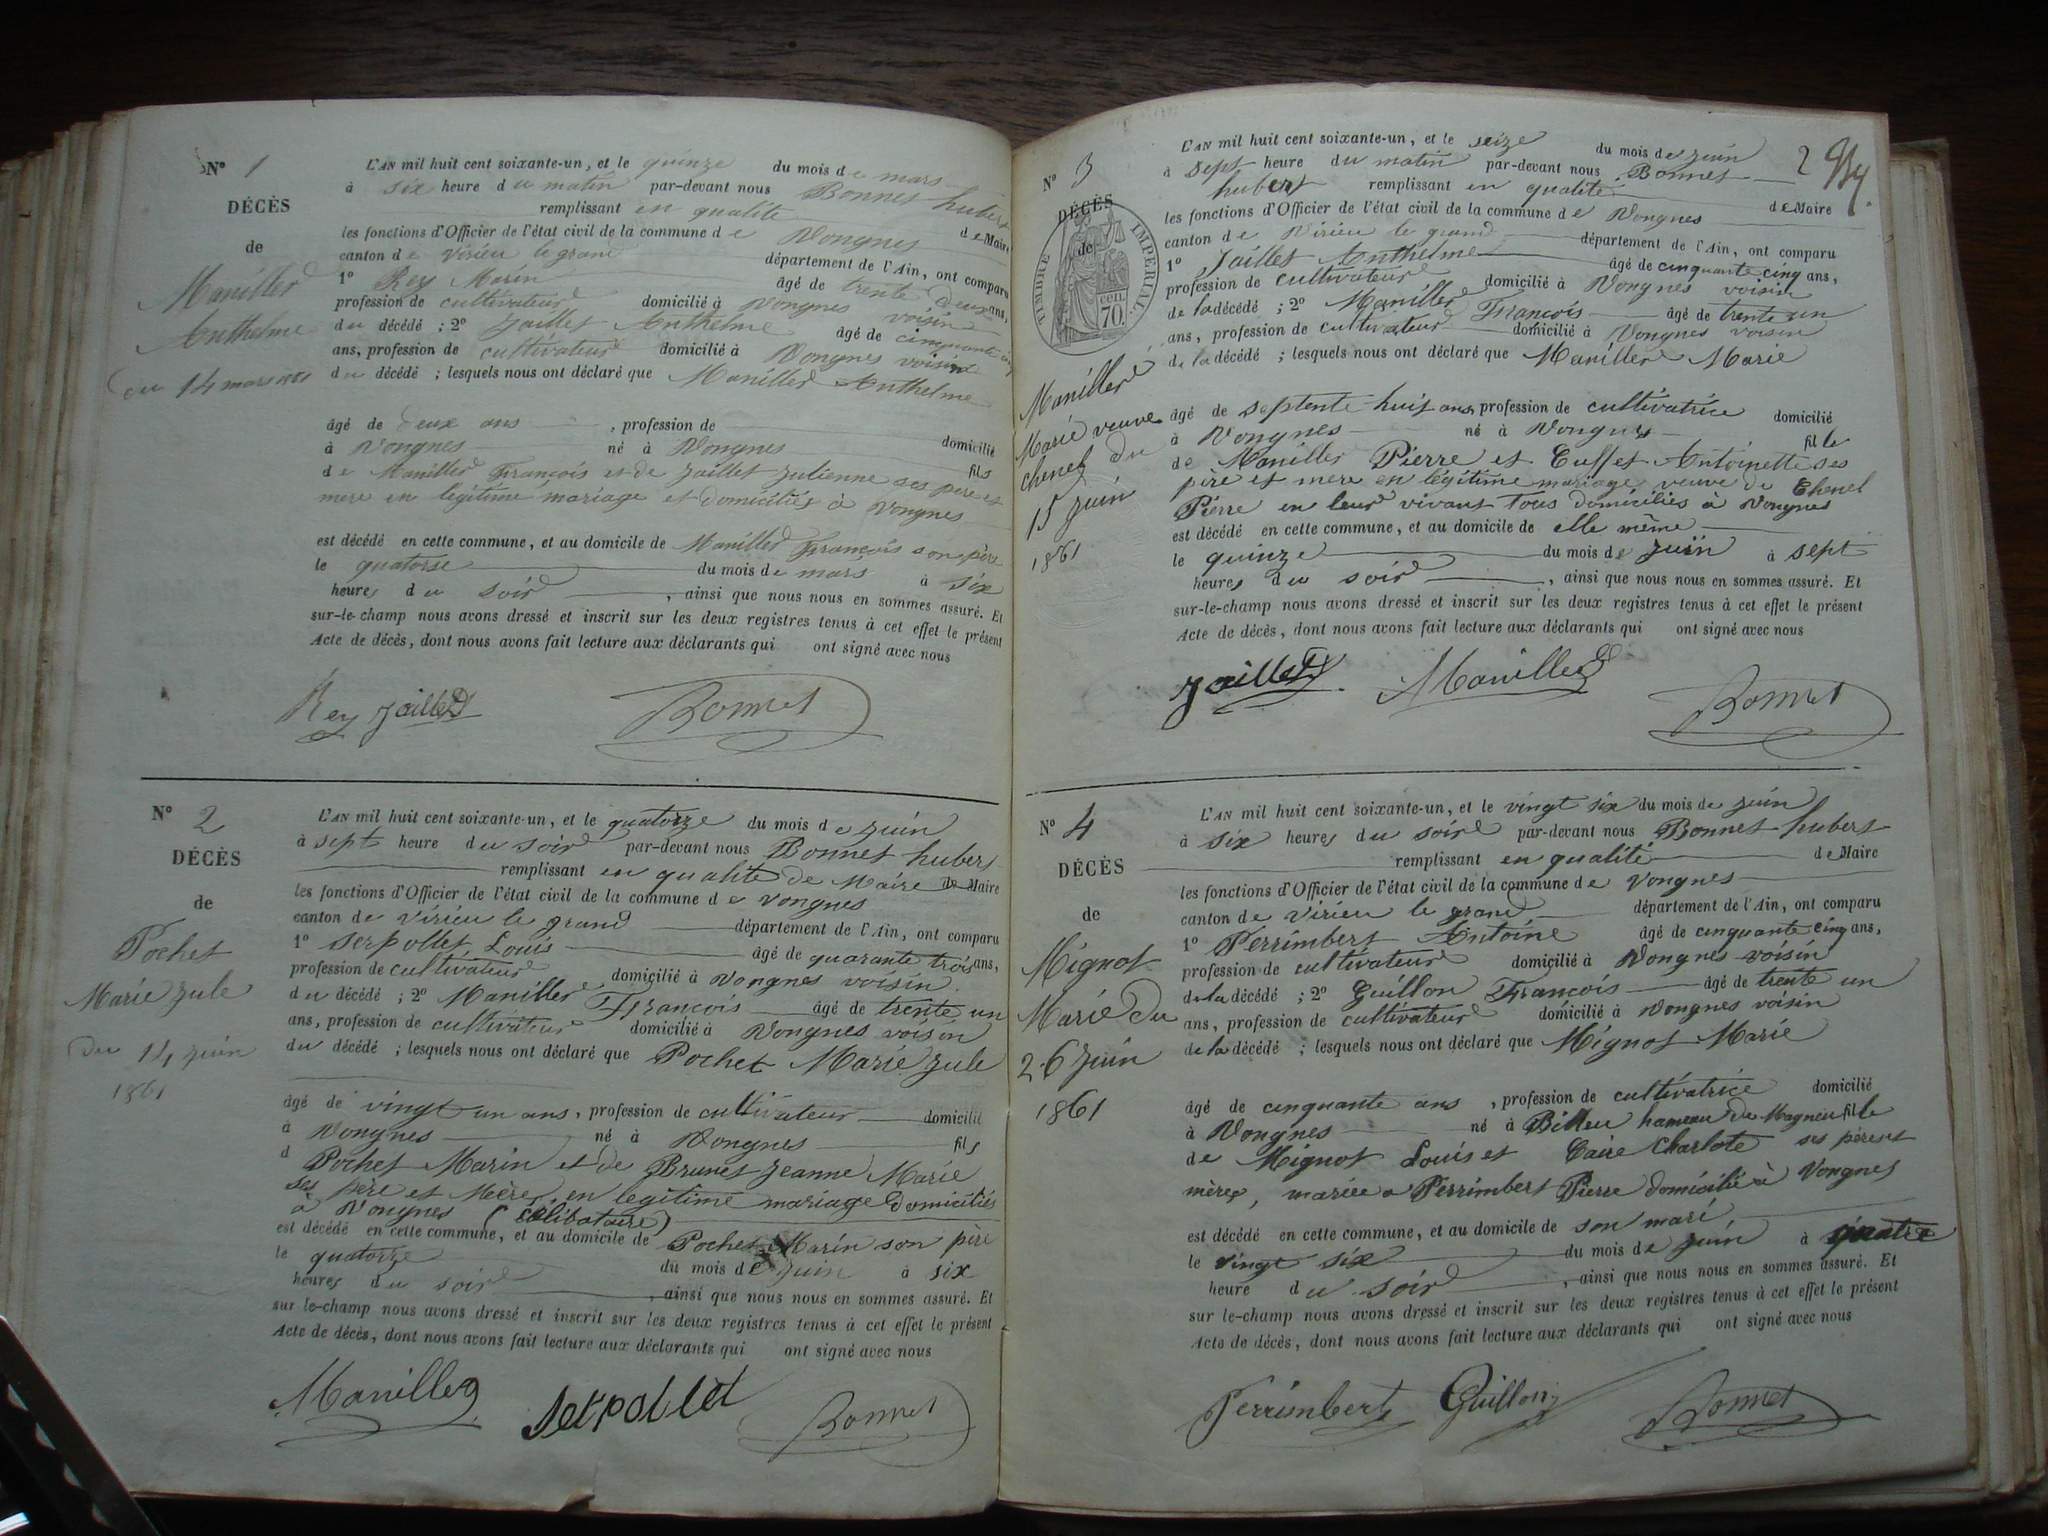 N° 1
DÉCÈS
de
Maniller
Anthelme
du 14 mars 1861
L'AN mil huit cent soixante-un, et le quinze du mois de mars
à six heure du matin par-devant nous Bonnet hubert
remplissant en qualité de Maire
les fonctions d'Officier de l'état civil de la commune de Vongnes
canton de Virieu le grand département de l'Ain, ont comparu
1° Rey Marin âgé de trente deux ans,
profession de cultivateur domicilié à Vongnes voisin
du décédé ; 2° Jaillet Anthelme âgé de cinquante cinq
ans, profession de cultivateur domicilié à Vongnes voisin
du décédé ; lesquels nous ont déclaré que Maniller Anthelme
âgé de deux ans , profession de domicilié
à Vongnes né à Vongnes fils
de Maniller François et de Jaillet Julienne ses père et
mere en légitime mariage et domiciliés à Vongnes
est décédé en cette commune, et au domicile de Maniller François son père
le quatorse du mois de mars à six
heures du soir , ainsi que nous nous en sommes assuré. Et
sur-le-champ nous avons dressé et inscrit sur les deux registres tenus à cet effet le présent
Acte de décès, dont nous avons fait lecture aux déclarants qui ont signé avec nous
Rey Jaillet Bonnet
N° 2
DÉCÈS
de
Pochet
Marie Jule
du 14 juin
1861
L'AN mil huit cent soixante-un, et le quatorze du mois de juin
à sept heure du soir par-devant nous Bonnet hubert
remplissant en qualité de Maire de Maire
les fonctions d'Officier de l'état civil de la commune de Vongnes
canton de Virieu le grand département de l'Ain, ont comparu
1° Serpollet Louis âgé de quarante trois ans,
profession de cultivateur domicilié à Vongnes voisin
du décédé ; 2° Maniller François âgé de trente un
ans, profession de cultivateur domicilié à Vongnes voisin
du décédé ; lesquels nous ont déclaré que Pochet Marie Jule
âgé de vingt un ans, profession de cultivateur domicilié
à Vongnes né à Vongnes fils
d Pochet Marin et de Brunet Jeanne Marie
Ses père et Mère, en legitime mariage Domiciliés
à Vongnes (célibataire)
est décédé en cette commune, et au domicile de Pochet Marin son père
le quatorze du mois de juin à six
heures du soir , ainsi que nous nous en sommes assuré. Et
sur le-champ nous avons dressé et inscrit sur les deux registres tenus à cet effet le présent
Acte de décès, dont nous avons fait lecture aux déclarants qui ont signé avec nous
Maniller Serpollet Bonnet
2
N° 3
DÉCÈS
de
TIMBRE IMPÉRIAL
cen.
70.
Maniller
Marie veuve
Chenel du
15 juin
1861
L'AN mil huit cent soixante-un, et le seize du mois de juin
à sept heure du matin par-devant nous Bonnet
hubert remplissant en qualité de Maire
les fonctions d'Officier de l'état civil de la commune de Vongnes
canton de Virieu le grand département de l'Ain, ont comparu
1° Jaillet Anthelme âgé de cinquante cinq ans,
profession de cultivateur domicilié à Vongnes voisin
de la décédé ; 2° Maniller François âgé de trente un
ans, profession de cultivateur domicilié à Vongnes voisin
de la décédé ; lesquels nous ont déclaré que Maniller Marie
âgé de septente huit ans, profession de cultivatrice domicilié
à Vongnes né à Vongnes fille
de Maniller Pierre et Cuffet Antoinette ses
père et mere en légitime mariage veuve de Chenel
Pierre en leur vivant tous domiciliés à Vongnes
est décédé en cette commune, et au domicile de elle même
le quinze du mois de juin à sept
heures du soir , ainsi que nous nous en sommes assuré. Et
sur-le-champ nous avons dressé et inscrit sur les deux registres tenus à cet effet le présent
Acte de décès, dont nous avons fait lecture aux déclarants qui ont signé avec nous
Jaillet Maniller Bonnet
N° 4
DÉCÈS
de
Mignot
Marie du
26 juin
1861
L'AN mil huit cent soixante-un, et le vingt six du mois de juin
à six heures du soir par-devant nous Bonnet hubert
remplissant en qualité de Maire
les fonctions d'Officier de l'état civil de la commune de Vongnes
canton de Virieu le grand département de l'Ain, ont comparu
1° Perrimbert Antoine âgé de cinquante cinq ans,
profession de cultivateur domicilié à Vongnes voisin
de la décédé ; 2° Guillon François âgé de trente un
ans, profession de cultivateur domicilié à Vongnes voisin
de la décédé ; lesquels nous ont déclaré que Mignot Marie
âgé de cinquante ans , profession de cultivatrice domicilié
à Vongnes né à Billieu hameau de Magnieu fille
de Mignot Louis et Caire Charlote ses père et
mère, mariée a Perrimbert Pierre domicilié à Vongnes
est décédé en cette commune, et au domicile de son mari
le vingt six du mois de juin à quatre
heure du soir , ainsi que nous nous en sommes assuré. Et
sur-le-champ nous avons dressé et inscrit sur les deux registres tenus à cet effet le présent
Acte de décès, dont nous avons fait lecture aux déclarants qui ont signé avec nous
Perrimbert Guillon Bonnet